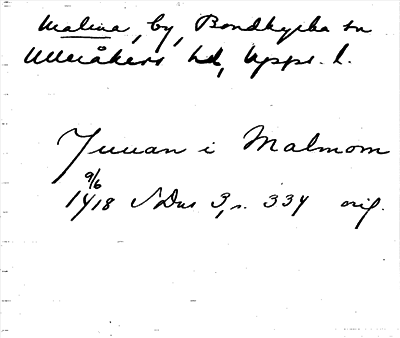 Malma, by, Bondkyrka sn
Ulleråkers hd, Upps. l.
Juuan i Malmom
9/6
1418 SDns 3, s. 334 orig.